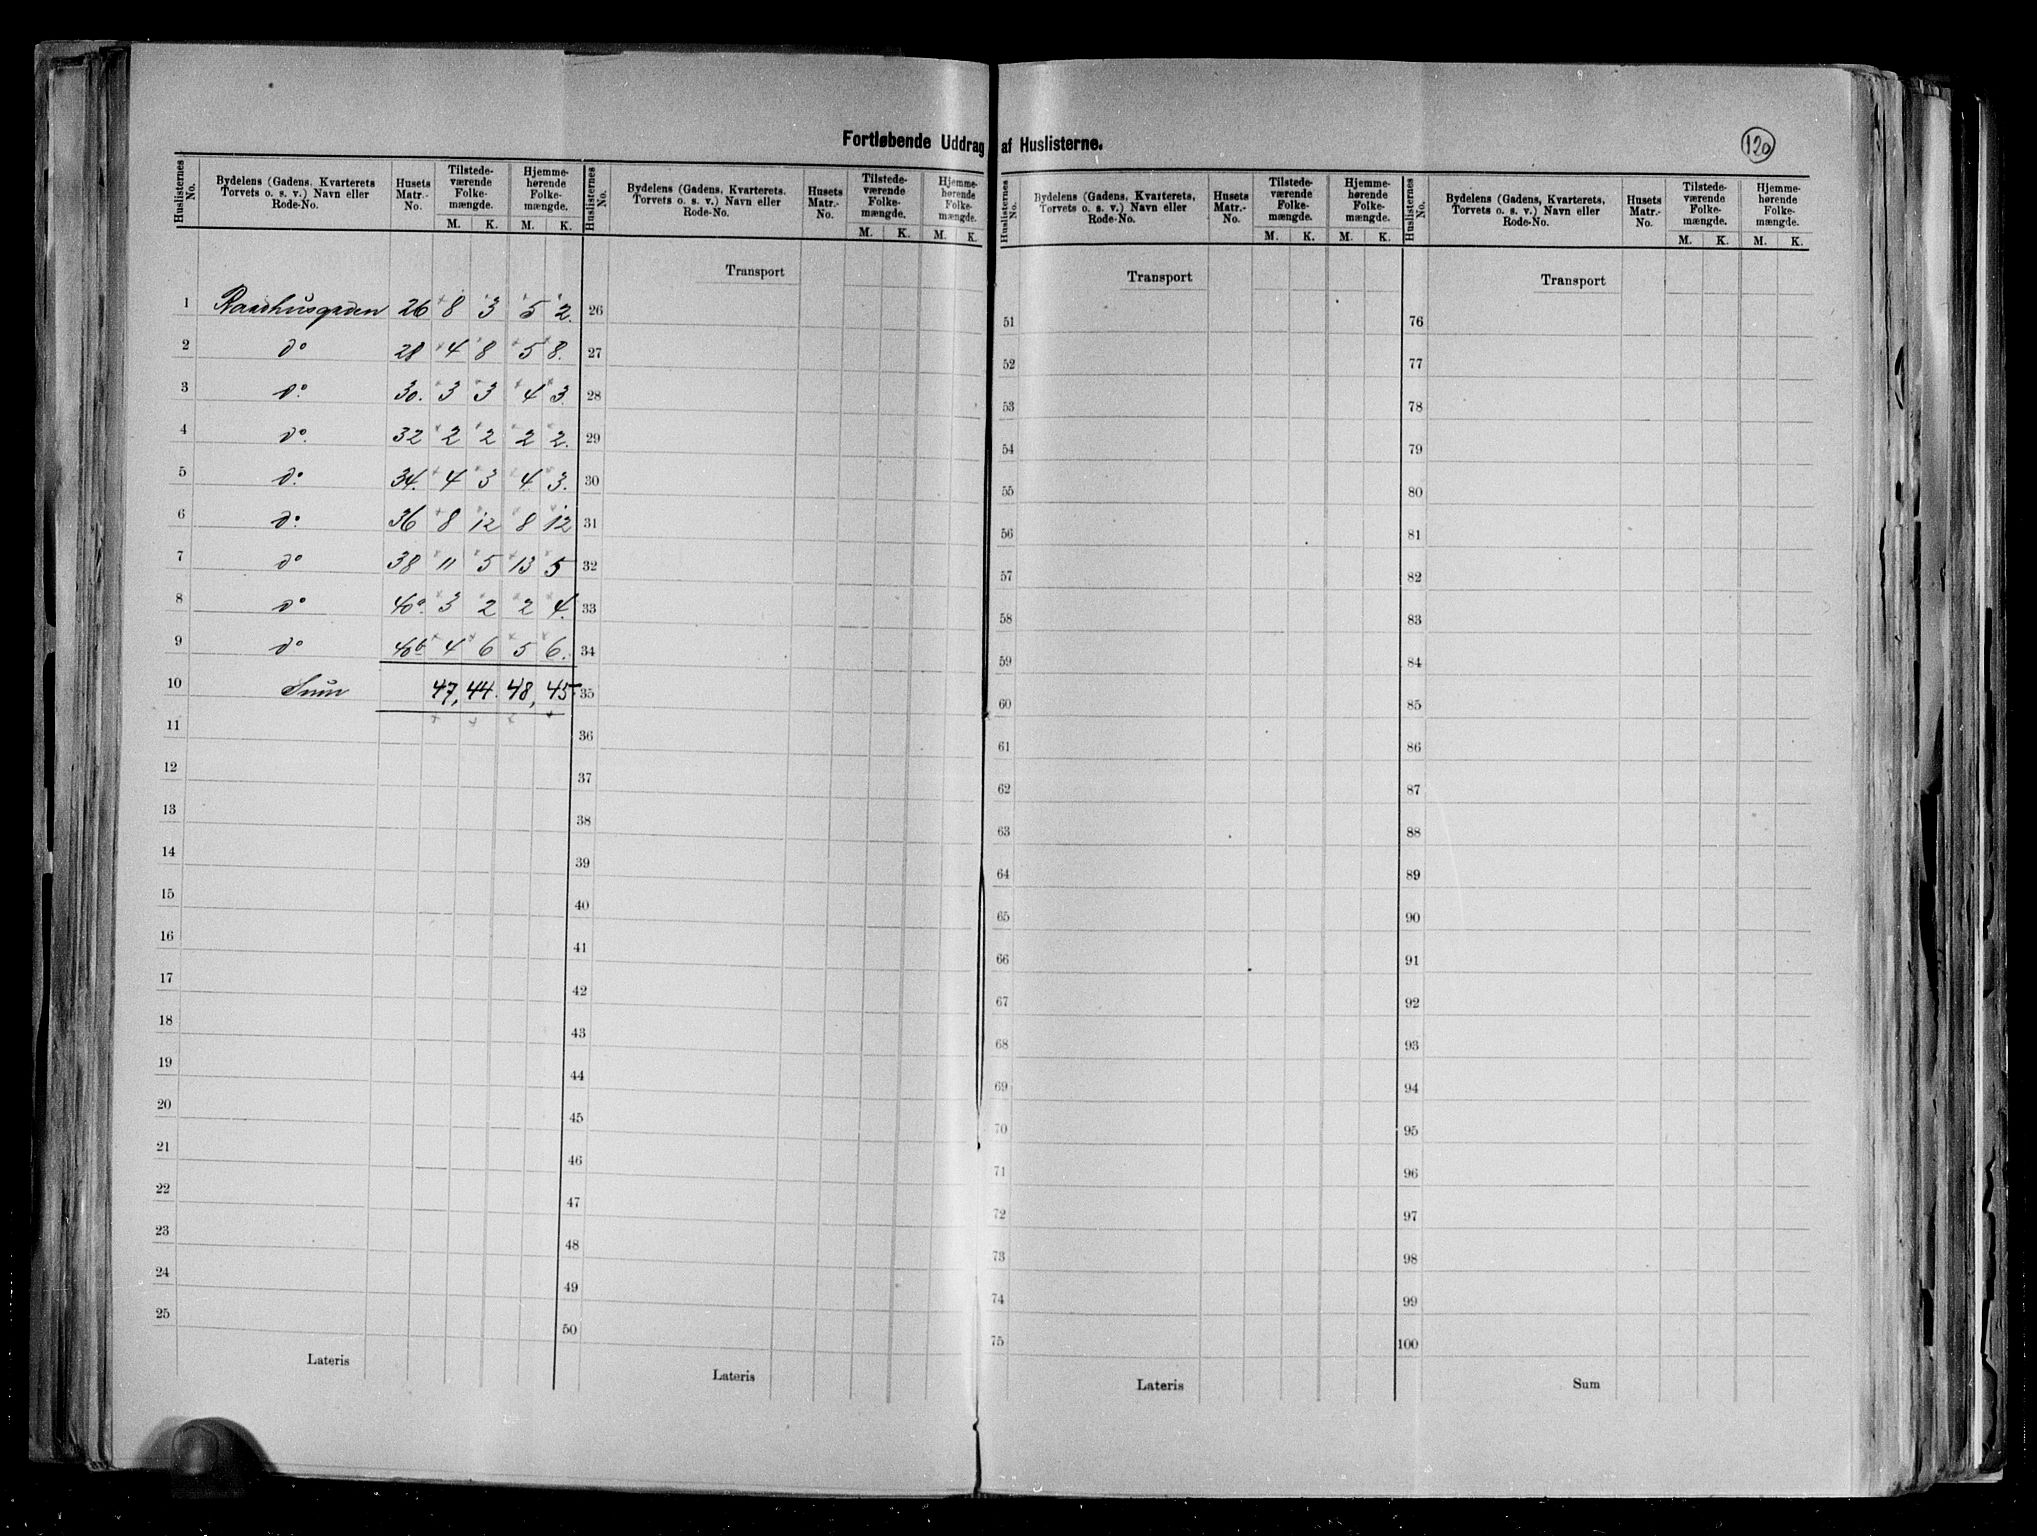 Fortløbende Uddrag af Huslisterne.
120
Huslisternes No. | Bydelens (Gadens, Kvarterets Torvets o. s. v.) Navn eller Rode-No. | Husets Matr.-No. | Tilstede-værende Folke-mængde. M. K. | Hjemme-hørende Folke-mængde. M. K.
1 Raadhusgaden 26 8 3 5 2.
2 do 28 4 8 5 8.
3 do. 30. 3 3 4 3
4 do. 32 2 2 2 2.
5 do. 34. 4 3 4 3.
6 do. 36 8 12 8 12
7 do 38 11 5 13 5
8 do 40a. 3 2 2 4.
9 do 40b 4 6 5 6.
10 Sum 47, 44. 48, 45
11
12
13
14
15
16
17
18
19
20
21
22
23
24
25
Lateris
Huslisternes No. | Bydelens (Gadens, Kvarterets, Torvets o. s. v.) Navn eller Rode-No. | Husets Matr.-No. | Tilstede-værende Folke-mængde. M. K. | Hjemme-hørende Folke-mængde. M. K.
Transport
26
27
28
29
30
31
32
33
34
35
36
37
38
39
40
41
42
43
44
45
46
47
48
49
50
Lateris
Huslisternes No. | Bydelens (Gadens, Kvarterets, Torvets o. s. v.) Navn eller Rode-No. | Husets Matr.-No. | Tilstede-værende Folke-mængde. M. K. | Hjemme-hørende Folke-mængde. M. K.
Transport
51
52
53
54
55
56
57
58
59
60
61
62
63
64
65
66
67
68
69
70
71
72
73
74
75
Lateris
Huslisternes No. | Bydelens (Gadens, Kvarterets, Torvets o. s. v.) Navn eller Rode-No. | Husets Matr.-No. | Tilstede-værende Folke-mængde. M. K. | Hjemme-hørende Folke-mængde. M. K.
Transport
76
77
78
79
80
81
82
83
84
85
86
87
88
89
90
91
92
93
94
95
96
97
98
99
100
Sum